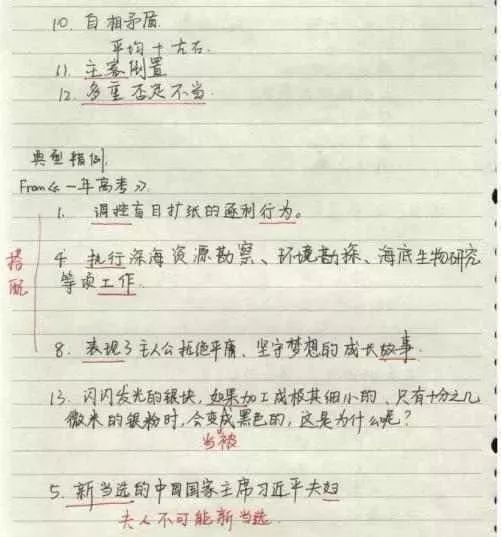 10. 自相矛盾.
平均 + 左右.
11. 主客倒置
12. 多重否定不当.
典型精例.
From《一年高考》
1. 调控盲目扩纸的逐利行为。
搭配
4. 执行深海资源勘察、环境勘探、海底生物研究
等项工作.
8. 表现了主人公拒绝平庸、坚守梦想的成长故事.
13. 闪闪发光的银块,如果加工成极其细小的、只有十分之几
微米的银粉时,会变成黑色的,这是为什么呢?
当被
5. 新当选的中国国家主席习近平夫妇
夫人不可能新当选.